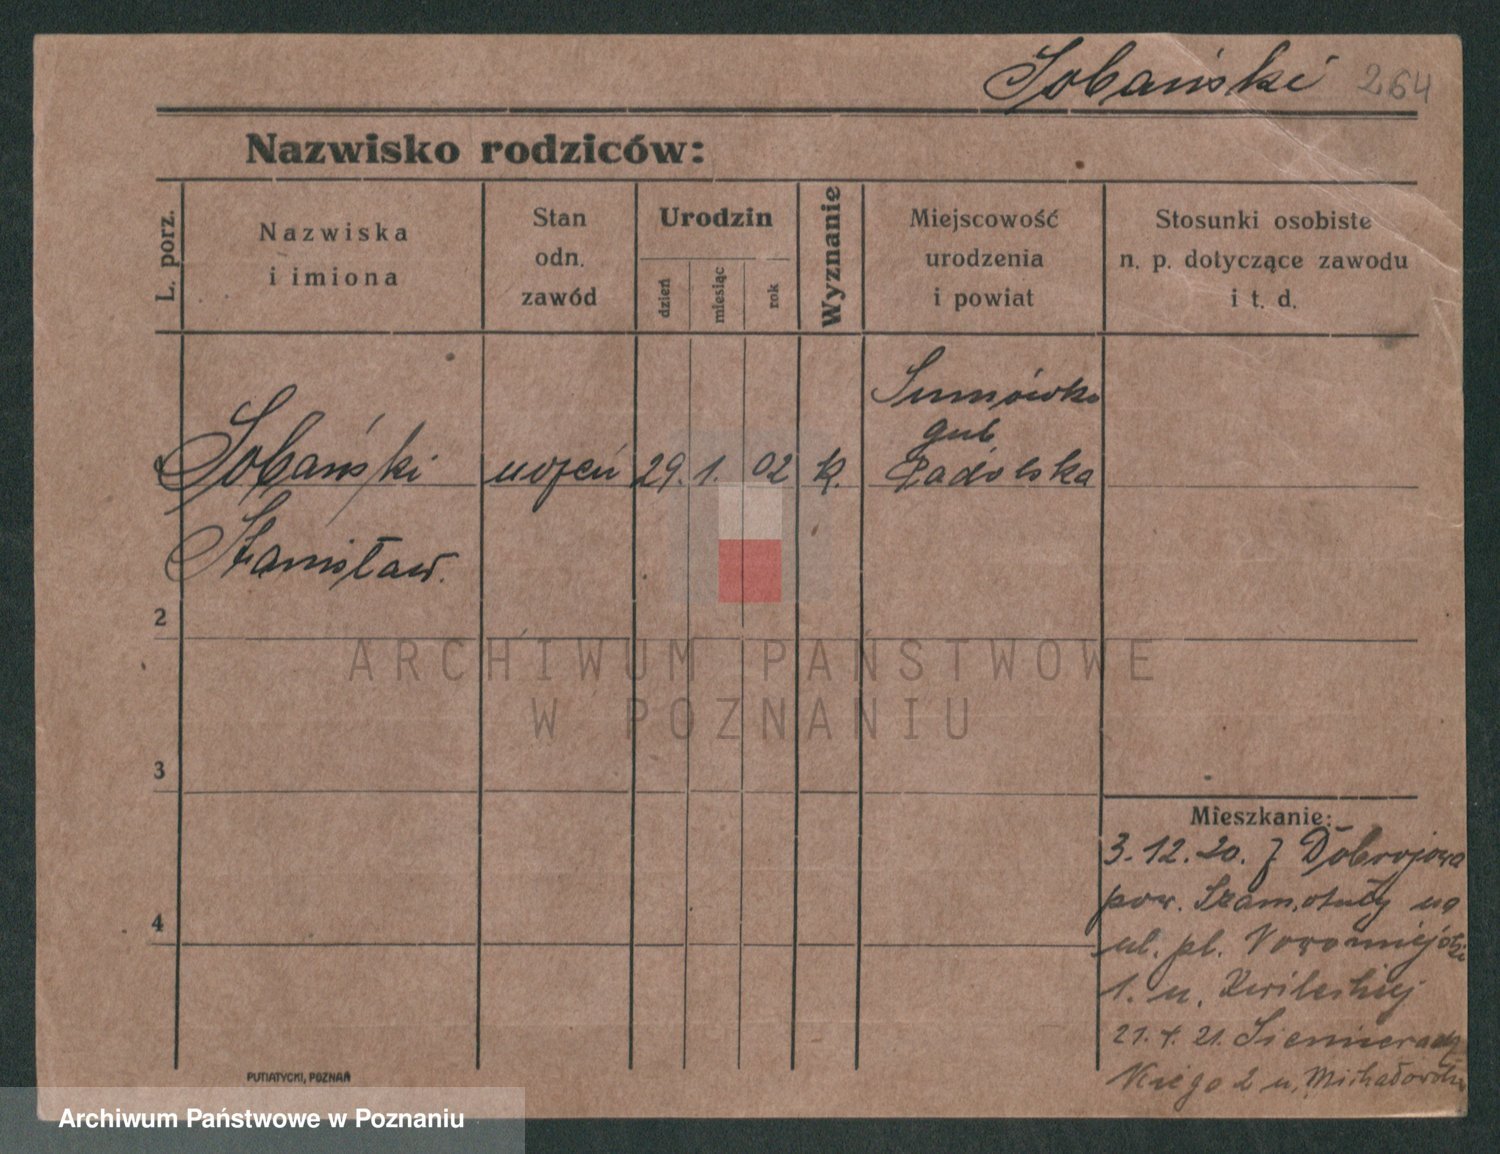 Sobański 264
Nazwisko rodziców:
L. porz.
Nazwiska
i imiona
Stan
odn.
zawód
Urodzin
dzień
miesiąc
rok
Wyznanie
Miejscowość
urodzenia
i powiat
Stosunki osobiste
n. p. dotyczące zawodu
i t. d.
Sumówka
gub.
Sobański uczeń 29. 1. 02 k. Padolska
Stanisław.
2
3
4
ARCHIWUM PAŃSTWOWE
W POZNANIU
Mieszkanie:
3.12.20. z Dobrojewa
pow. Szamotuły na
ul. pl. Nowomiejski
1. u. Kwileckiej
21. 4. 21. Siemieradz
kiego 2 u. Michałowska
PUTIATYCKI, POZNAŃ
Archiwum Państwowe w Poznaniu